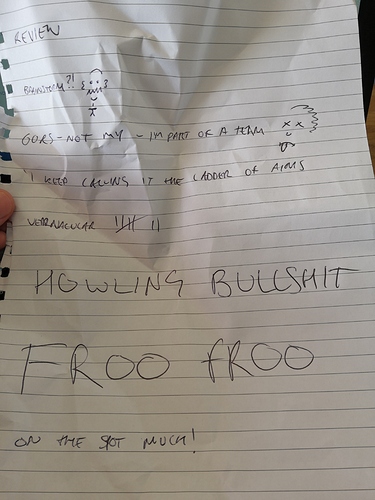 REVIEW
BRAINSTORM?!
OURS - NOT MY - IM PART OF A TEAM
"I KEEP CALLING IT THE LADDER OF AIMS
VERNACULAR |||| ||
HOWLING BULLSHIT
FROO FROO
ON THE SPOT MUCH!